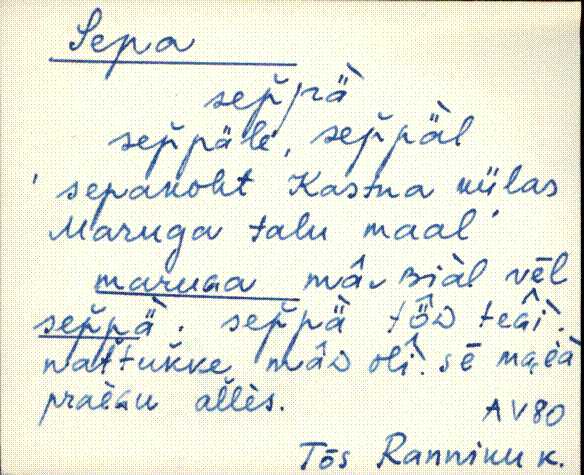 Sepa
sep̆pä̀
sep̆päl̀e, sep̆päl
' sepakoht Kastna külas
Maruga talu maal '
maruɢa mâ, ʙiàl vēl
sep̆pä̀. sep̆pä
nat̆tuk̆ke mâᴅ olî. sē
praèɢu al̆lès.
AV80
Tõs Ranniku k.